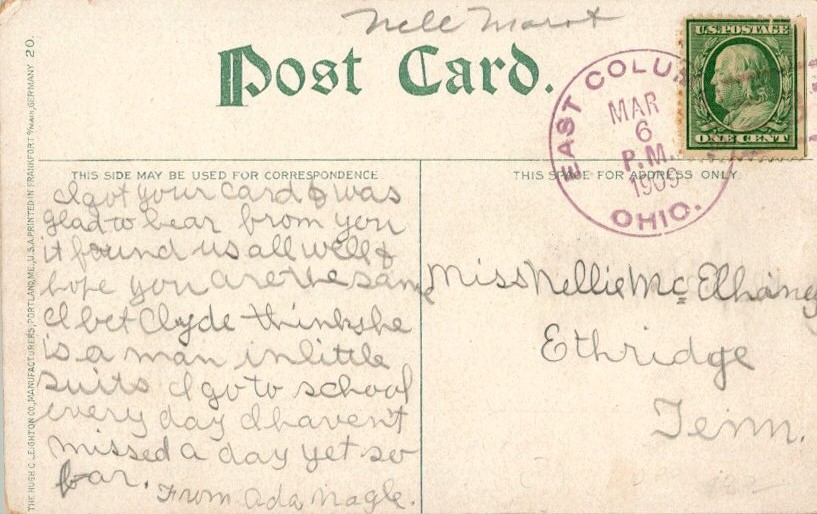 Nell Marot
Post Card.
U.S. POSTAGE
ONE CENT
EAST COLUM
MAR
6
P.M.
1909
OHIO.
THIS SIDE MAY BE USED FOR CORRESPONDENCE
THIS SPACE FOR ADDRESS ONLY.
I got your card & was
glad to hear from you
it found us all well &
hope you are the same
I bet Clyde thinks he
is a man in little
suits I go to school
every day I haven't
missed a day yet so
far. From Ada Nagle.
Miss Nellie McElhaney
Ethridge
Tenn.
THE HUGH C. LEIGHTON CO., MANUFACTURERS, PORTLAND, ME., U.S.A. PRINTED IN FRANKFORT o/Main, GERMANY 20.